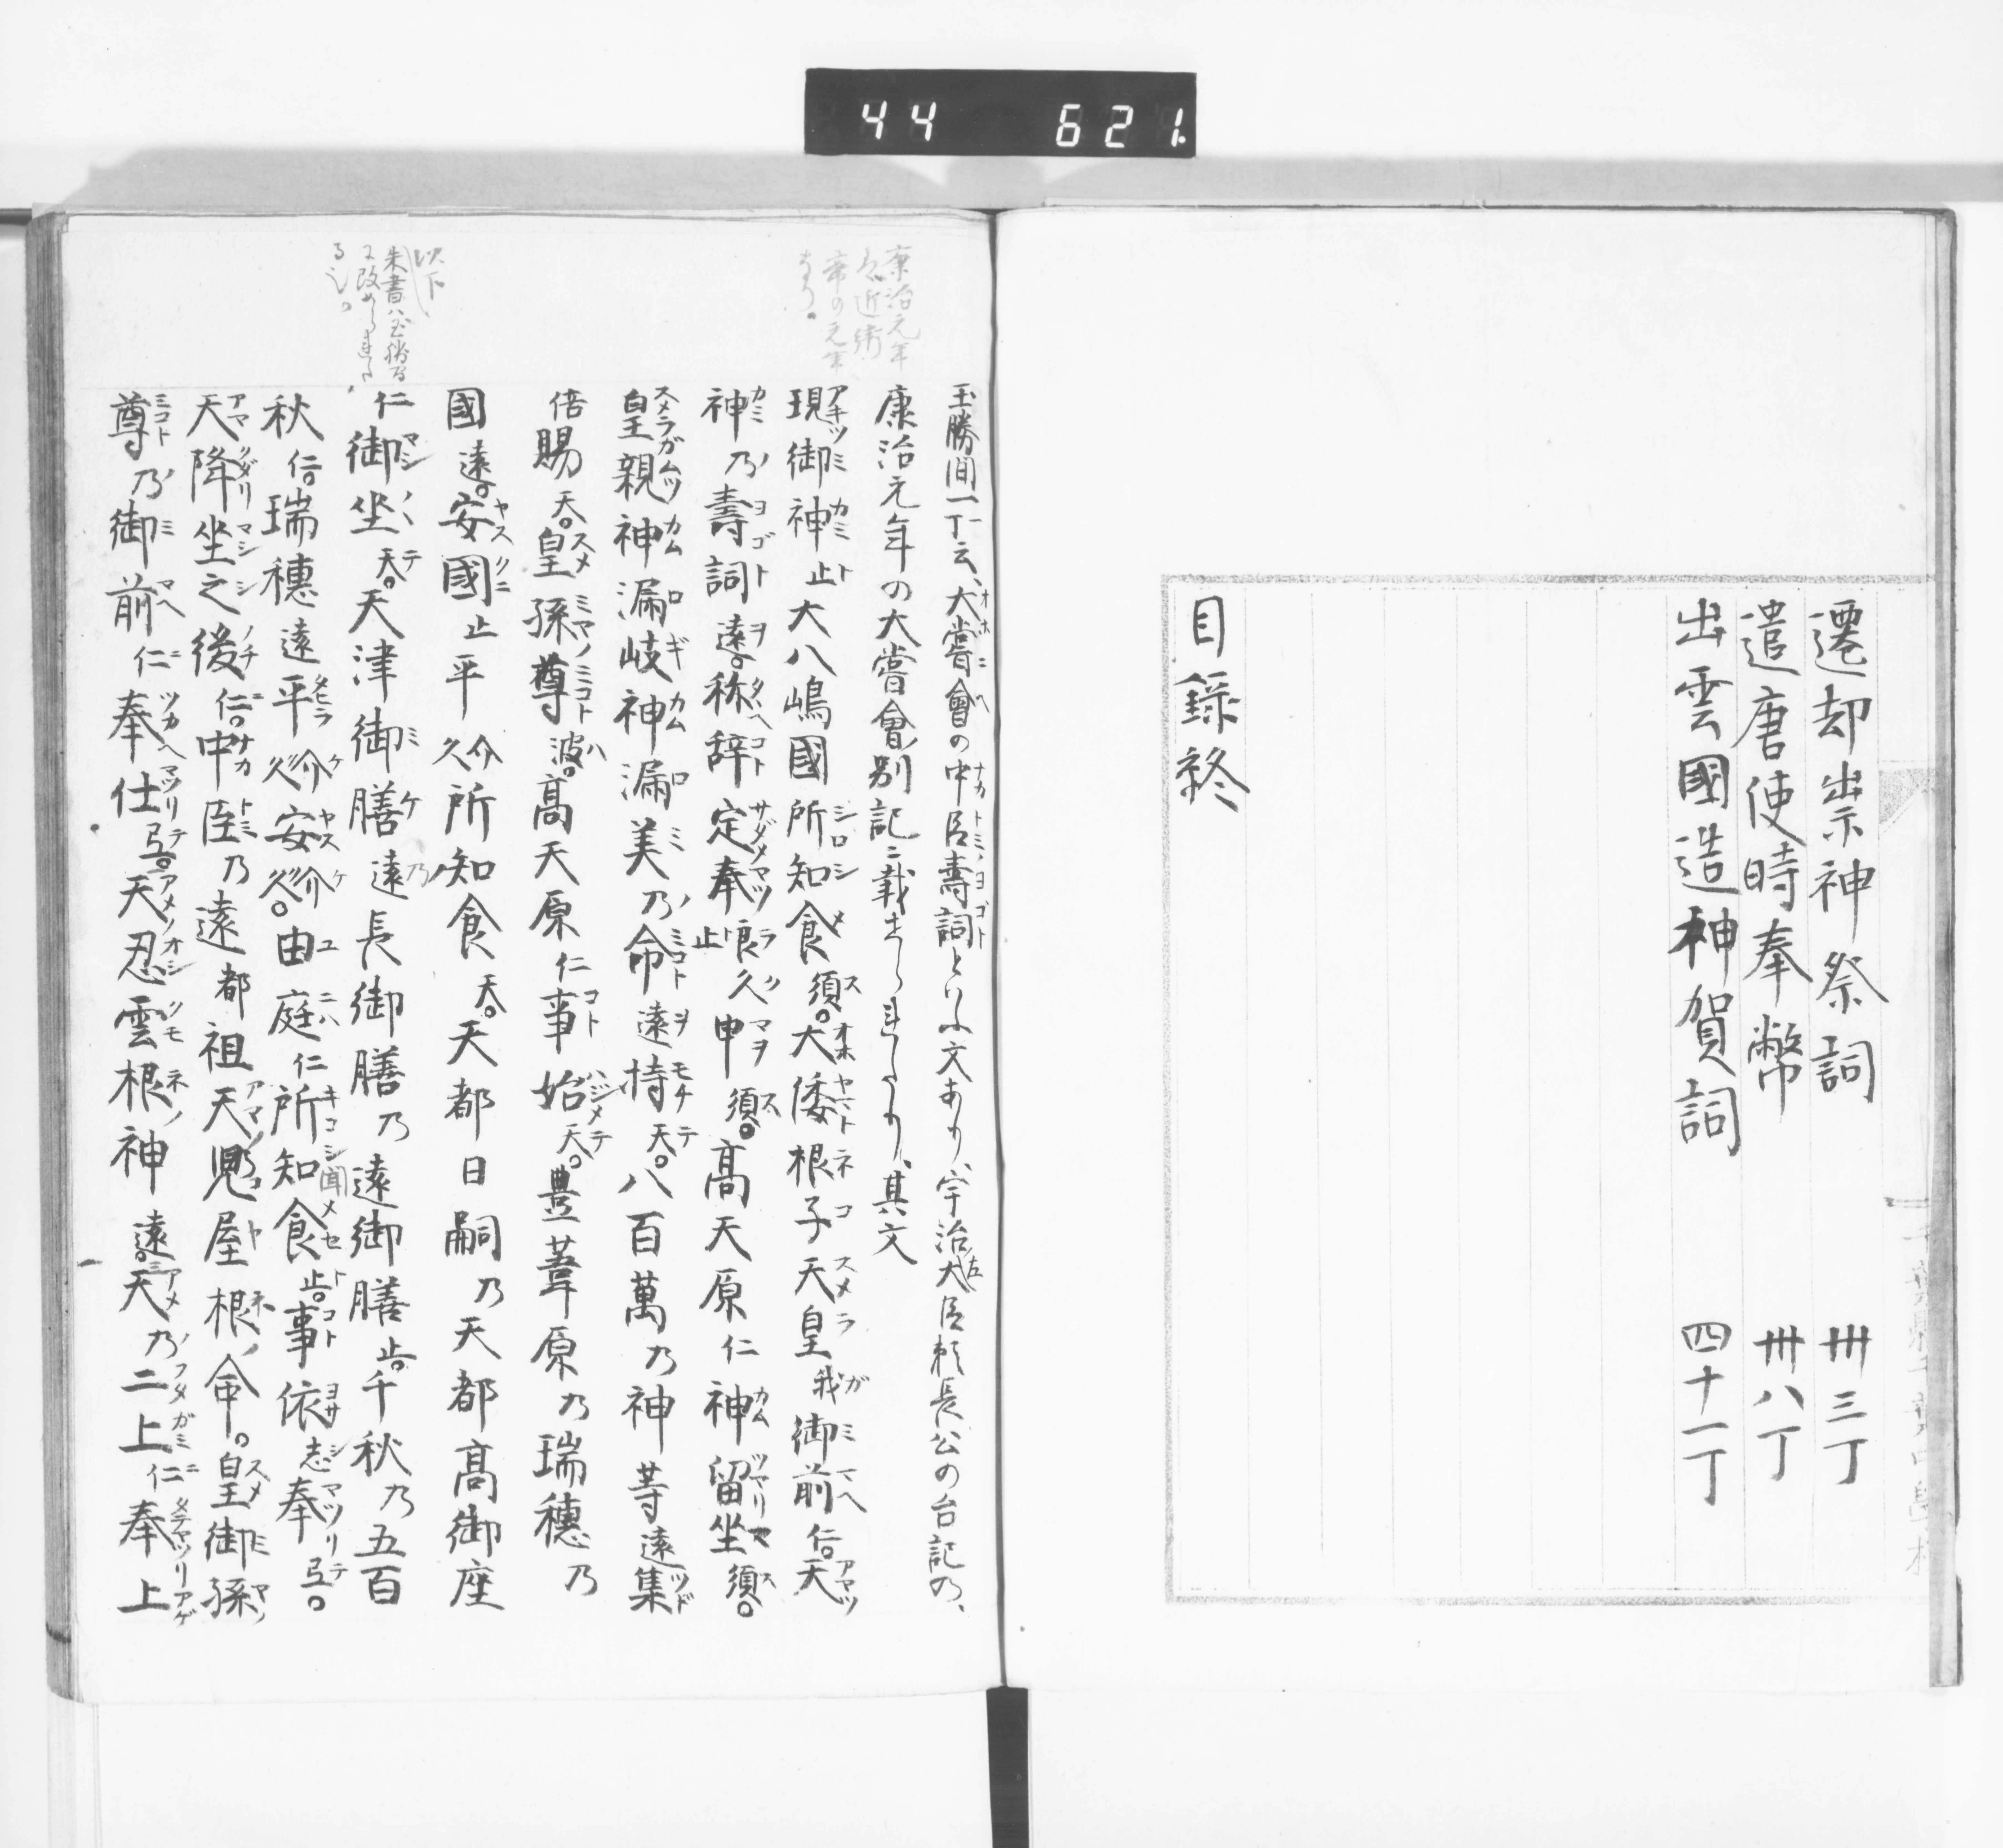 44 621
遷却祟神祭詞 卅三丁
遣唐使時奉幣 卅八丁
出雲國造神賀詞 四十一丁
目録終
康治元年
ハ近衛
帝の元年
なり。
玉勝間一丁云、大嘗會の中臣壽詞といふ文あり、宇治左大臣頼長公の台記の、
康治元年の大嘗會別記ニ載せられたり、其文
現御神止大八嶋國所知食須。大倭根子天皇我御前仁。天
神乃壽詞遠。称辞定奉良久止申須。髙天原仁神留坐須。
皇親神漏岐神漏美乃命遠持天。八百萬乃神等遠集
倍賜天。皇孫尊波。髙天原仁事始天。豊葦原乃瑞穗乃
國遠。安國止平介久所知食天。天都日嗣乃天都髙御座
仁御坐天。天津御膳遠長御膳乃遠御膳止。千秋乃五百
秋仁。瑞穗遠平介久安介久。由庭仁所知食止。事依志奉弖。
天降坐之後仁。中臣乃遠都祖天兒屋根命。皇御孫
尊乃御前仁奉仕弖。天忍雲根神遠。天乃二上仁奉上
以下
朱書ハ玉勝間
る也。